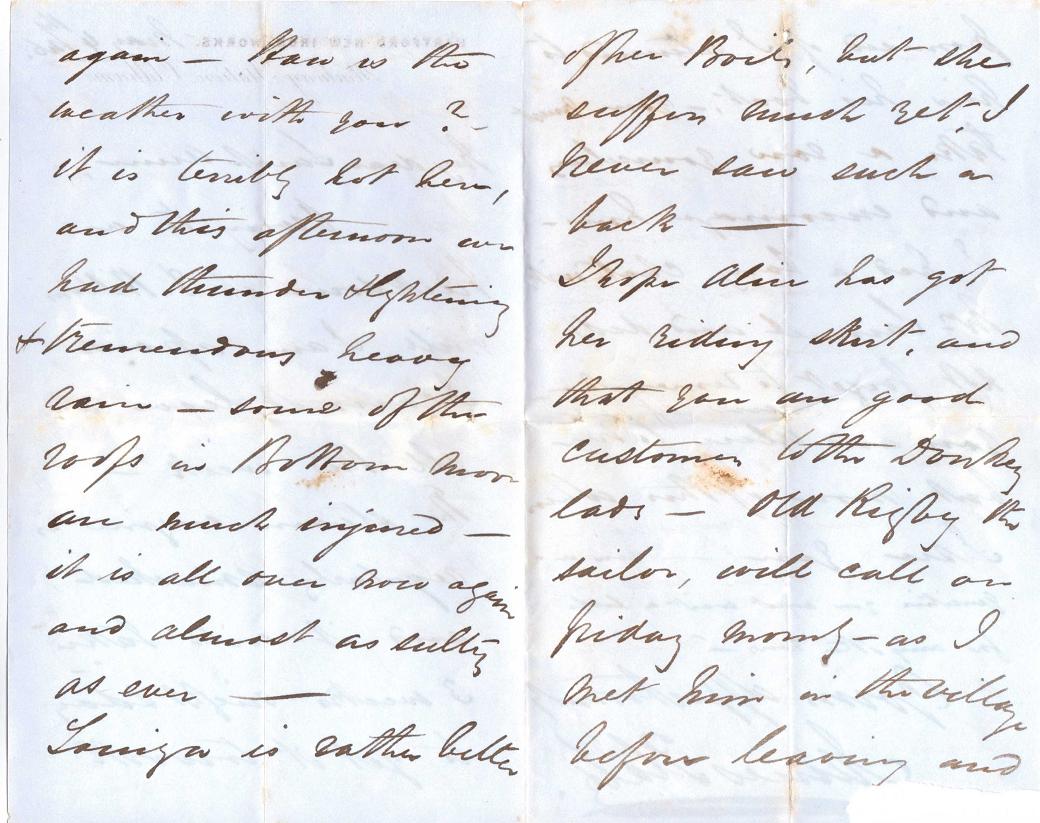 again — How is the
weather with you ?
it is terribly hot here,
and this afternoon we
had thunder & lightening
& tremendous heavy
rain — some of the
roofs in Bottom moor
are much injured —
it is all over now again
and almost as sultry
as ever —
Louiza is rather better
of her Boils, but she
suffers much yet, I
never saw such a
back —
I hope Alice has got
her riding skirt, and
that you are good
customers to the Donkey
lads — Old Rigby the
sailor, will call on
friday morng — as I
met him in the village
before leaving and